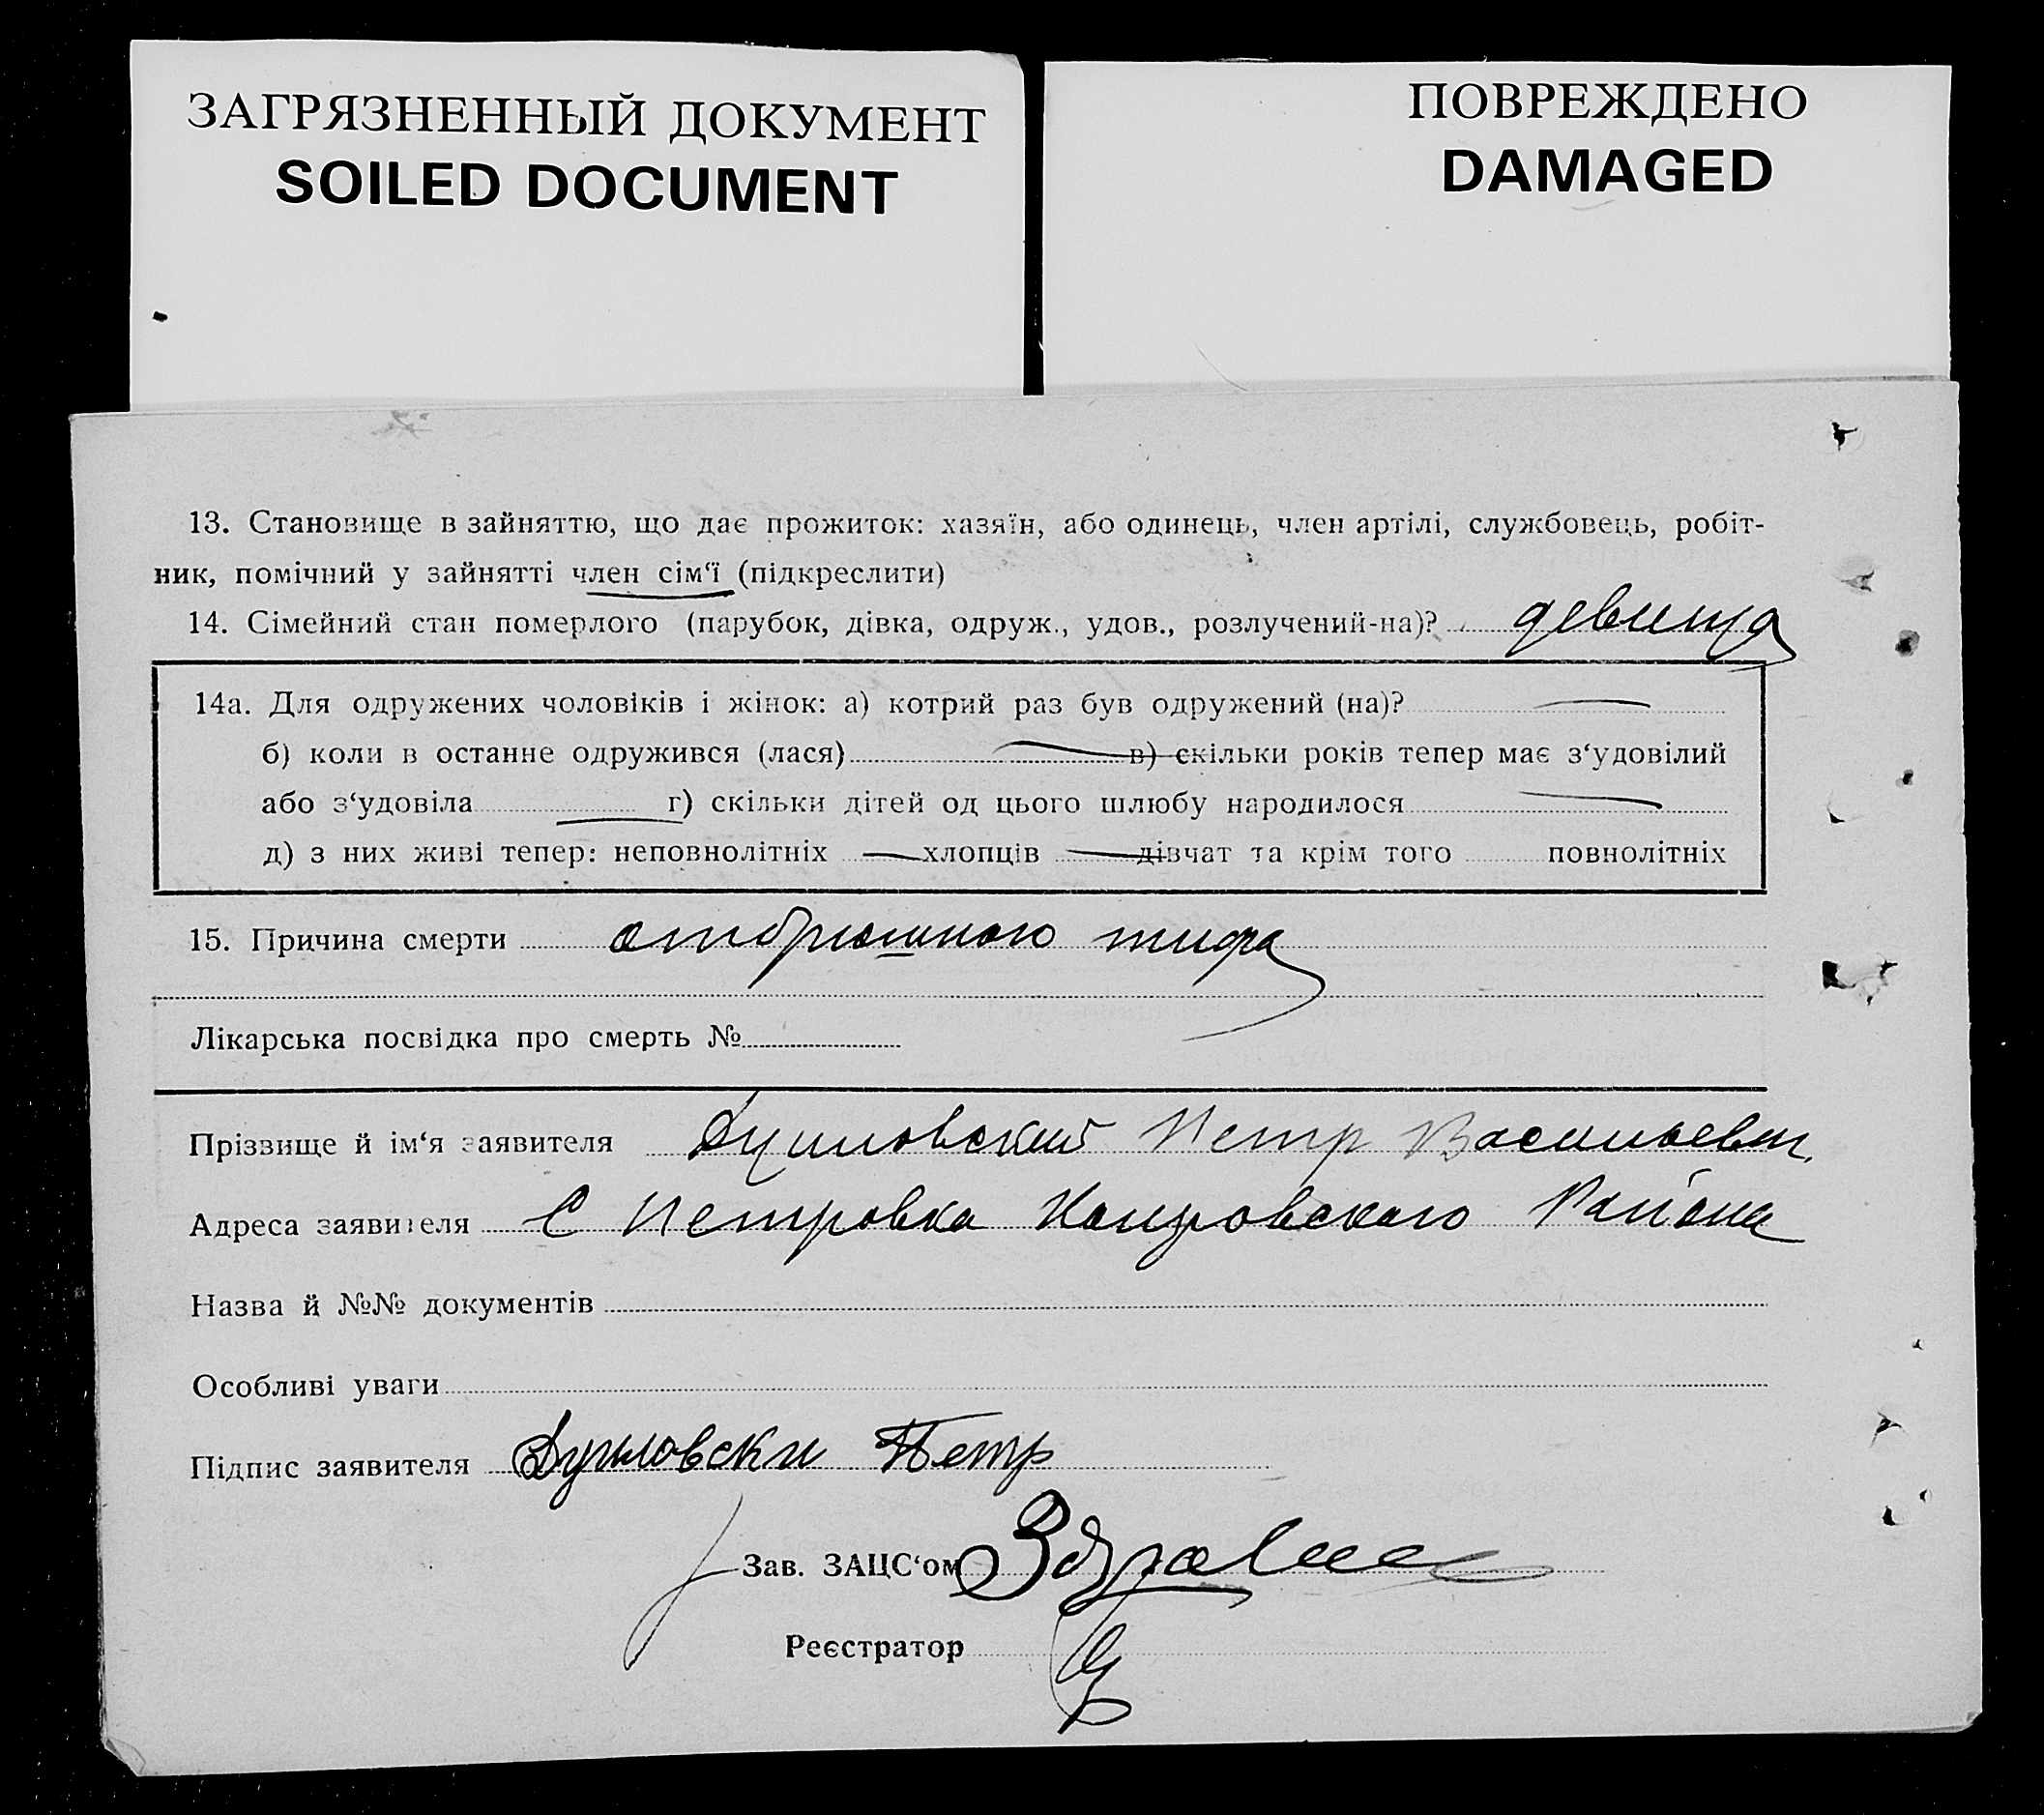 ЗАГРЯЗНЕННЫЙ ДОКУМЕНТ
SOILED DOCUMENT
ПОВРЕЖДЕНО
DAMAGED
13. Становище в зайняттю, що дає прожиток: хазяїн, або одинець, член артілі, службовець, робіт-
ник, помічний у зайнятті член сім‘ї (підкреслити)
14. Сімейний стан померлого (парубок, дівка, одруж., удов., розлучений-на)? девица
14а. Для одружених чоловіків і жінок: а) котрий раз був одружений (на)?
б) коли в останнє одружився (лася) в) скільки років тепер має з‘удовілий
або з‘удовіла г) скільки дітей од цього шлюбу народилося
д) з них живі тепер: неповнолітніх хлопців дівчат та крім того повнолітніх
15. Причина смерти от брюшного тифа
Лікарська посвідка про смерть №
Прізвище й ім‘я заявителя Петр Васильевич
Адреса заявителя С Петровка Района
Назва й №№ документів
Особливі уваги
Підпис заявителя Петр
Зав. ЗАЦС‘ом
Реєстратор